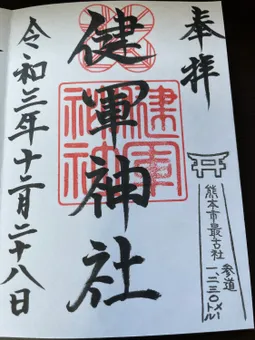 奉拝
熊本市最古社
参道
一、二三〇メートル
健軍神社
健軍神社
令和三年十二月二十八日